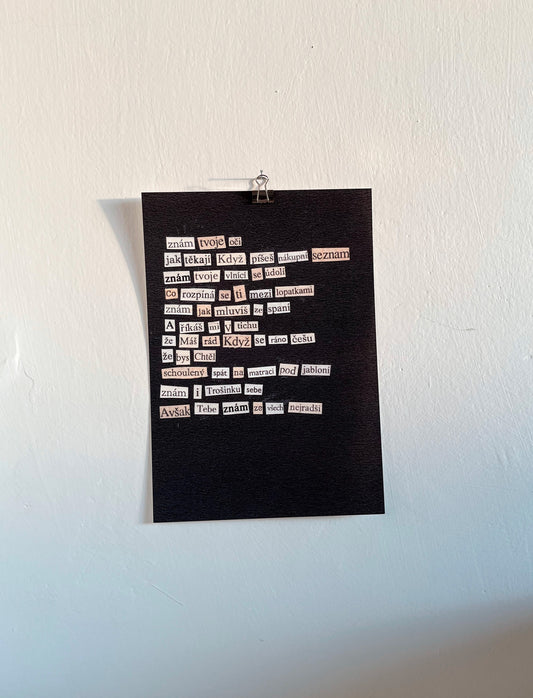 znám tvoje oči
jak těkají Když píšeš nákupní seznam
znám tvoje vlnící se údolí
Co rozpíná se ti mezi lopatkami
znám jak mluvíš ze spaní
A říkáš mi V tichu
že Máš rád Když se ráno češu
že bys Chtěl
schoulený spát na matraci pod jabloní
znám i Trošinku sebe
Avšak Tebe znám ze všech nejradši